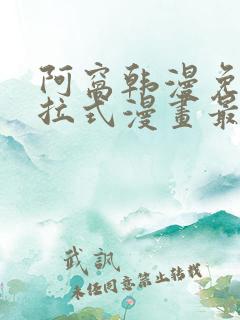 阿窩韩漫免
拉式漫畫最
武訊
未经同意禁止转载